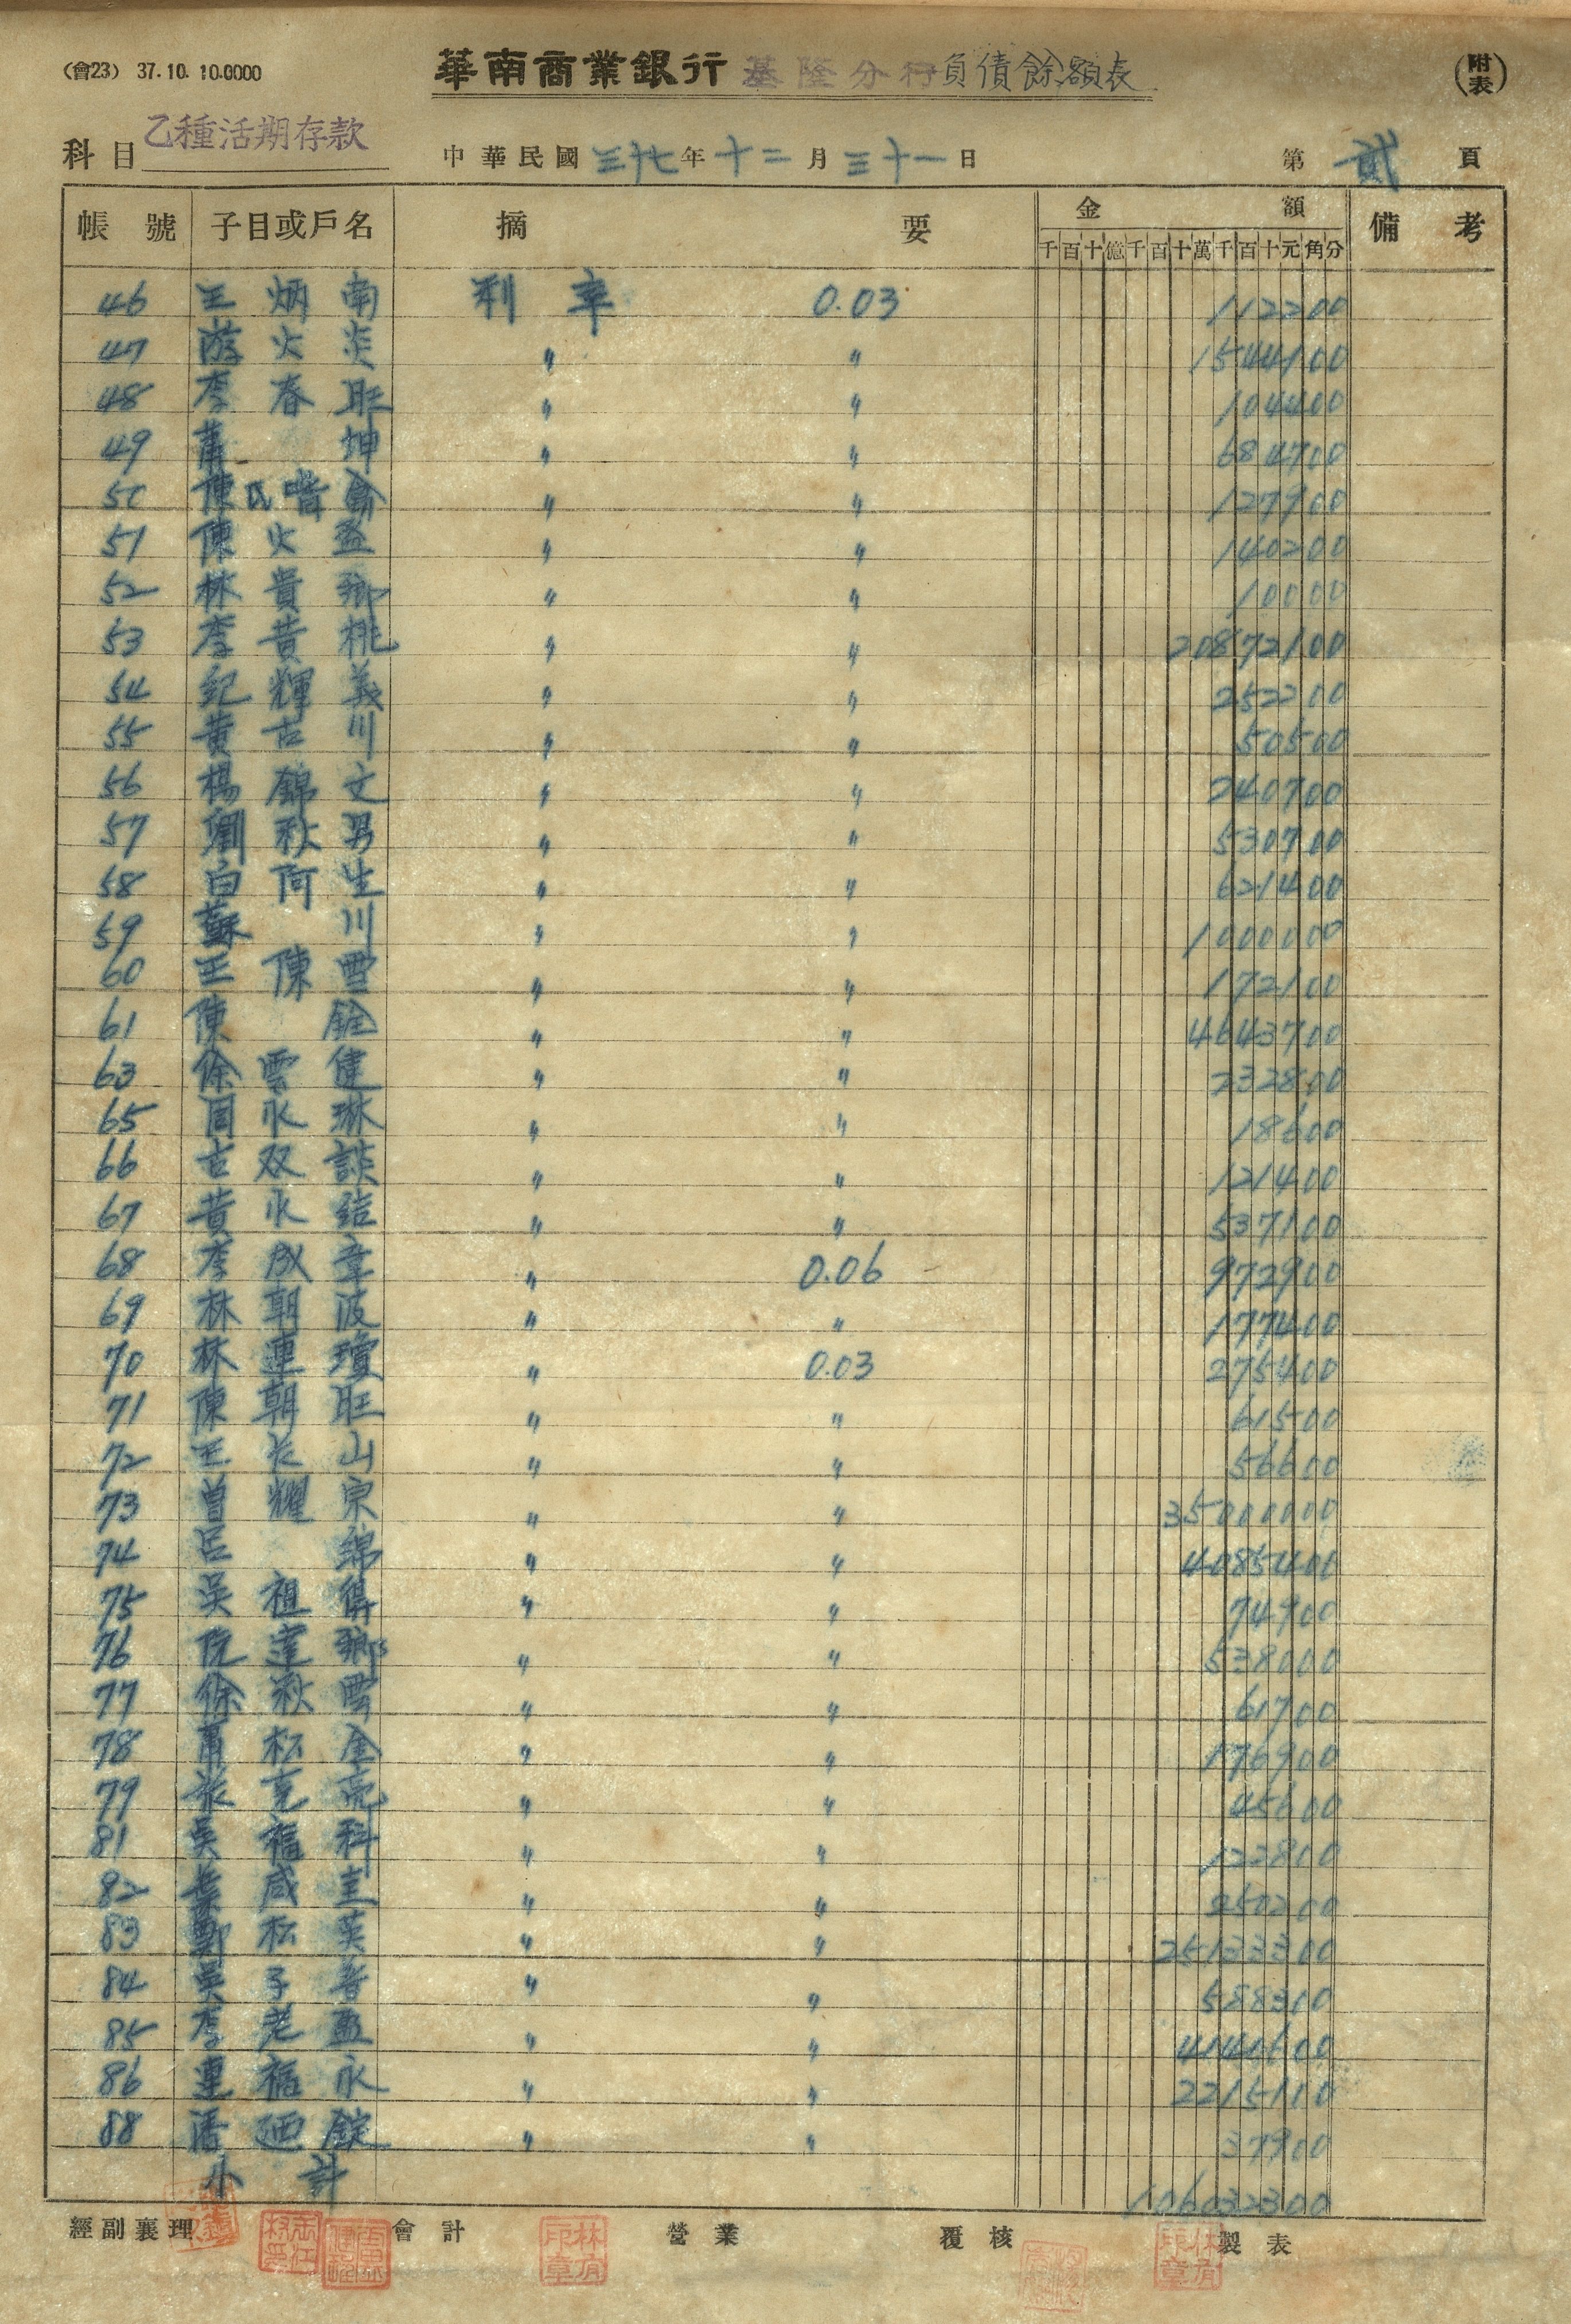 (會23) 37.10.10.0000
華南商業銀行基隆分行負債餘額表
(附表)
科目 乙種活期存款 中華民國三十七年十二月三十一日 第貳頁
帳號 子目或戶名 摘要 金額 備考
千百十億千百十萬千百十元角分
46 王炳南 利率 0.03 112200
47 游火炎 〃 〃 1544100
48 李春旺 〃 〃 104400
49 蕭坤 〃 〃 684700
50 陳氏 〃 〃 127900
51 陳火盈 〃 〃 140200
52 林貴鄉 〃 〃 10000
53 李黃桃 〃 〃 20872100
54 紀輝義 〃 〃 252200
55 黃古川 〃 〃 50500
56 楊錦文 〃 〃 240700
57 劉秋男 〃 〃 530700
58 白阿生 〃 〃 621400
59 蘇川 〃 〃 1000000
60 王陳雪 〃 〃 172100
61 陳銓 〃 〃 4643700
63 徐雲健 〃 〃 232800
65 周水琳 〃 〃 18600
66 古双談 〃 〃 121400
67 黃水結 〃 〃 537100
68 李成章 〃 0.06 972900
69 林朝波 〃 〃 177400
70 林連瓊 〃 0.03 275400
71 陳朝旺 〃 〃 61500
72 王长山 〃 〃 56600
73 曾耀宗 〃 〃 35000000
74 呂綿 〃 〃 4085400
75 吳祖得 〃 〃 74900
76 阮達鄉 〃 〃 538000
77 徐淑雲 〃 〃 61700
78 蕭松金 〃 〃 176900
79 張克亮 〃 〃 45600
81 吳福科 〃 〃 123800
82 葉咸圭 〃 〃 250200
83 鄭松英 〃 〃 25133300
84 吳子香 〃 〃 588300
85 李老盈 〃 〃 4140600
86 連福永 〃 〃 2215100
88 潘廼錠 〃 〃 37900
小計 106032300
經副襄理 會計 營業 覆核 製表